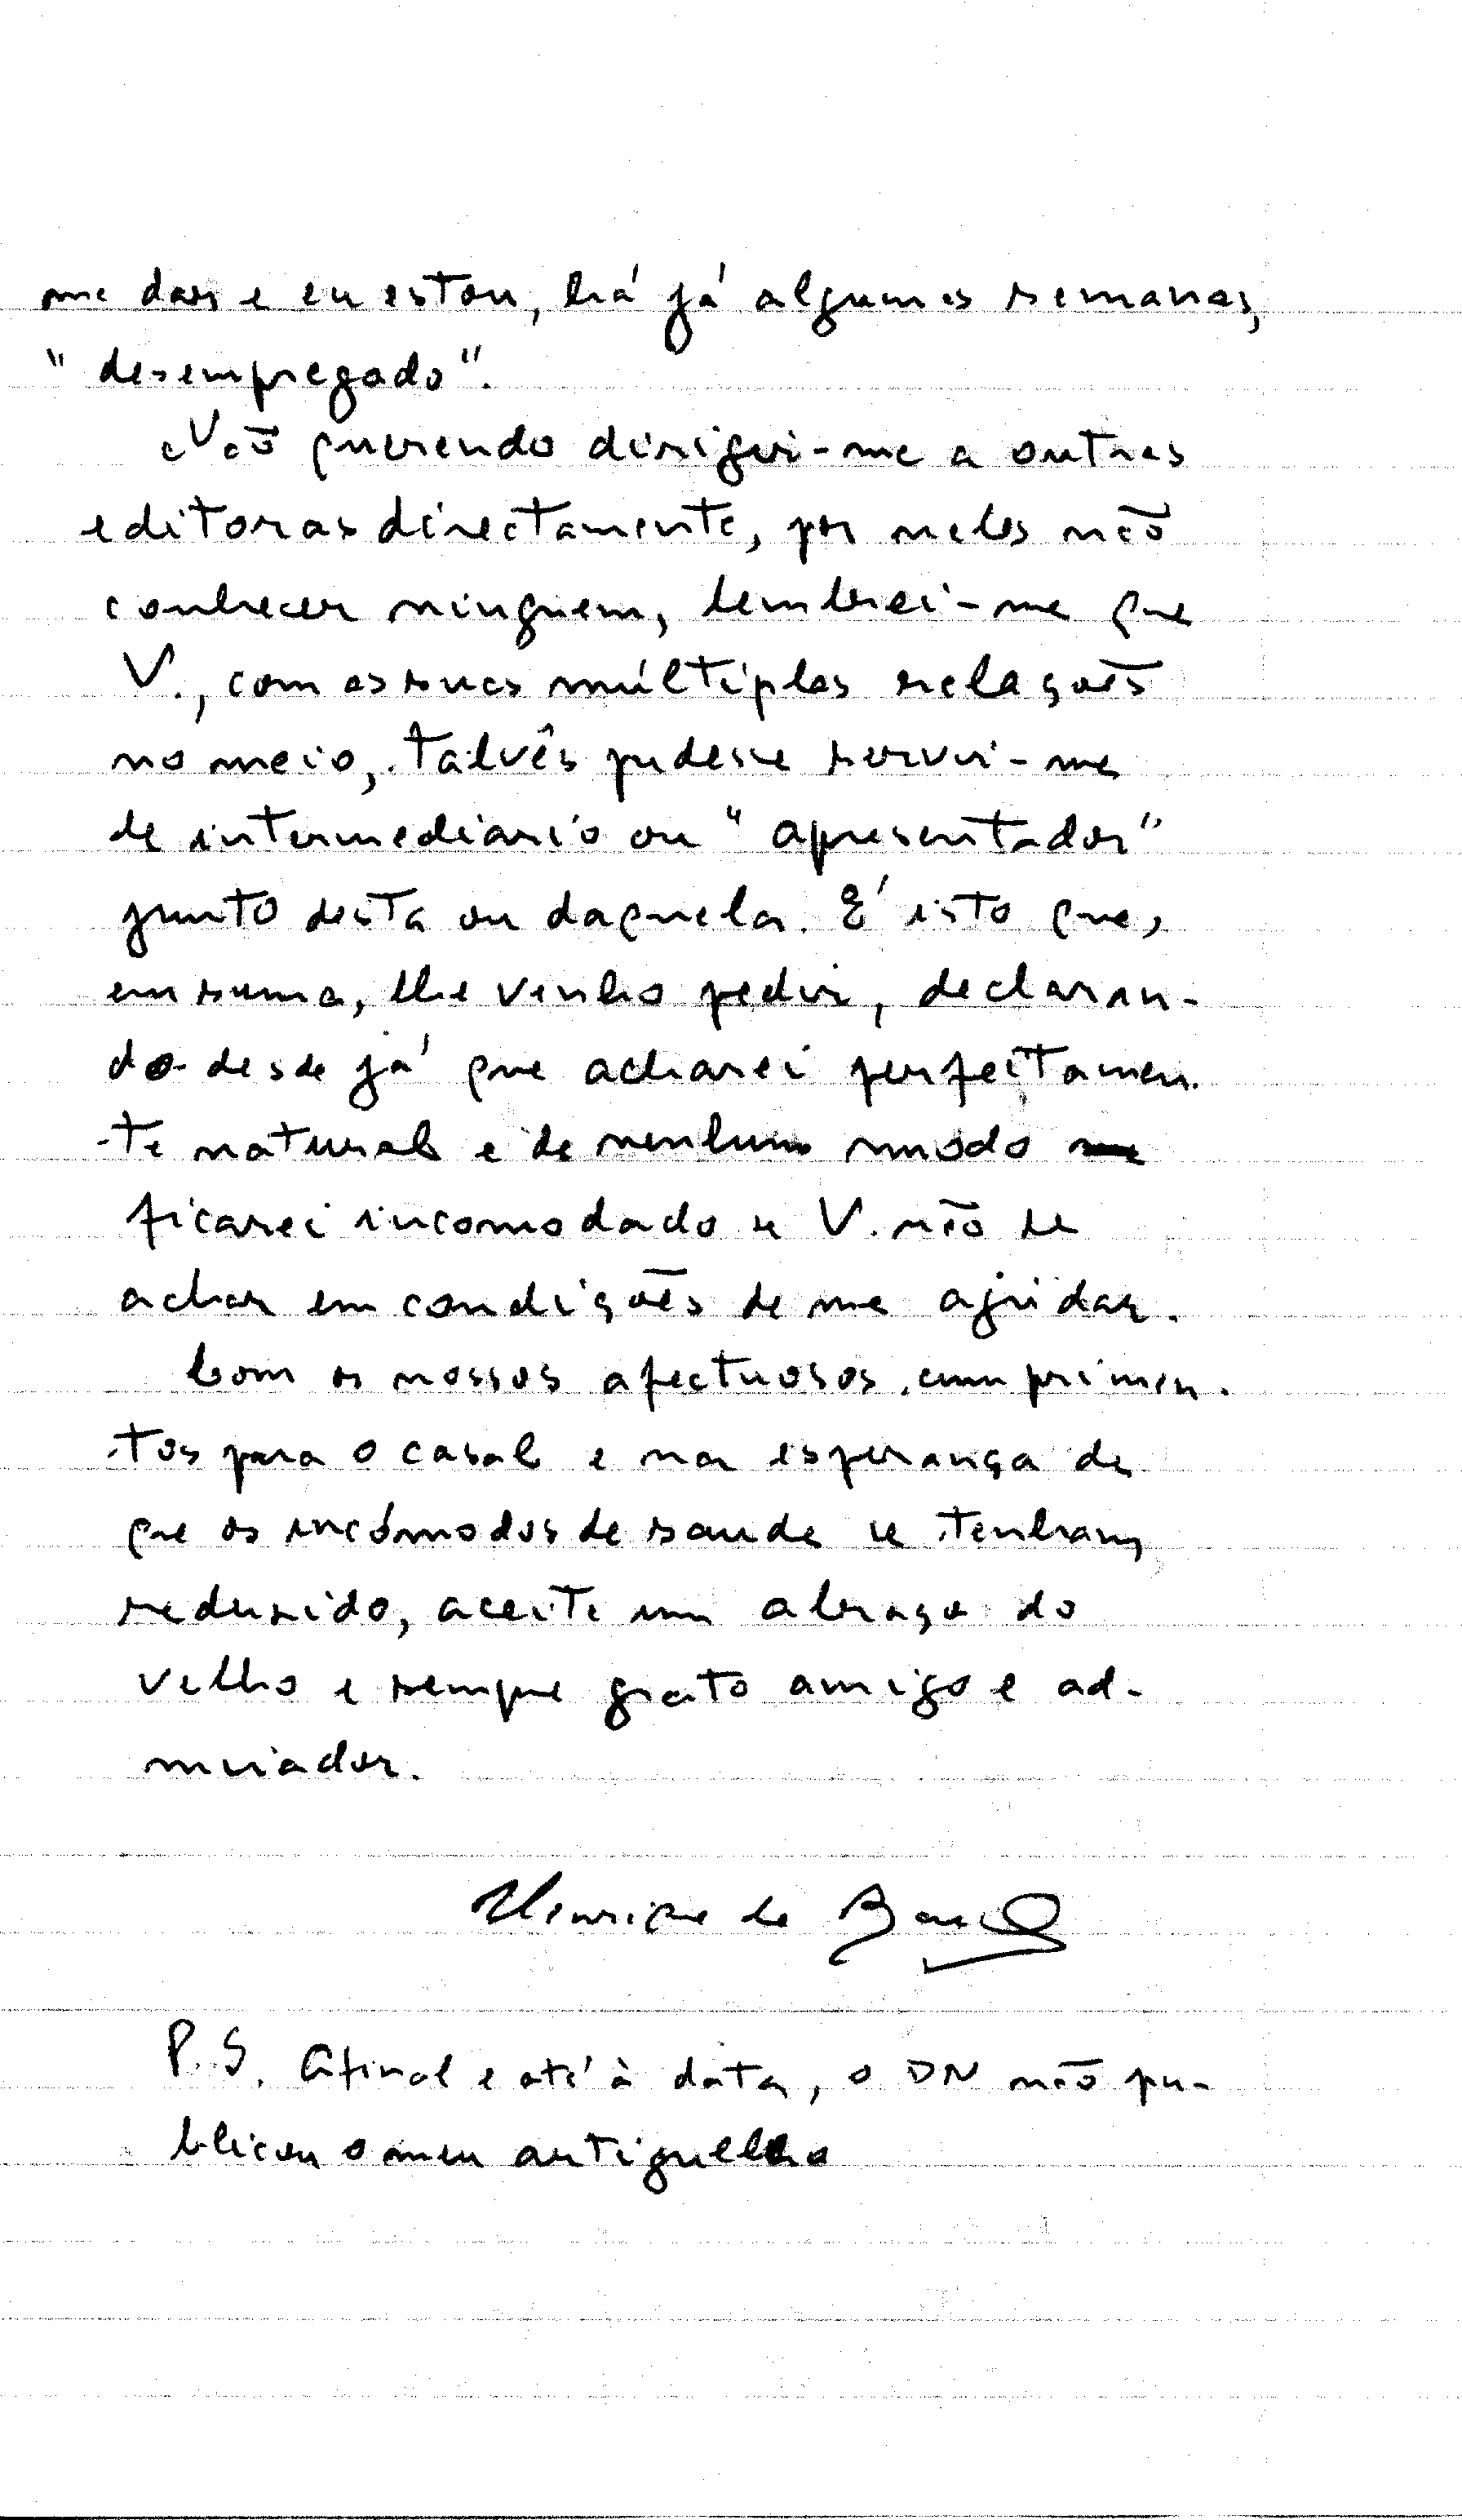 me dar e eu estou, há já algumas semanas,
"desempregado".
Não querendo dirigir-me a outras
editoras directamente, por nelas não
conhecer ninguem, lembrei-me que
V., com as suas múltiplas relações
no meio, talvês pudesse servir-me
de intermediario ou "apresentador"
junto desta ou daquela. É isto que,
em suma, lhe venho pedir, declaran-
do desde já que acharei perfeitamen-
-te natural e de nenhum modo
ficarei incomodado se V. não se
achar em condições de me ajudar.
Com os nossos afectuosos cumprimen-
tos para o casal e na esperança de
que os incómodos de saude se tenham
reduzido, aceite um abraço do
velho e sempre grato amigo e ad-
mirador.
Henrique de
P.S. Afinal e até à data, o DN não pu-
blicou o meu artiguelho